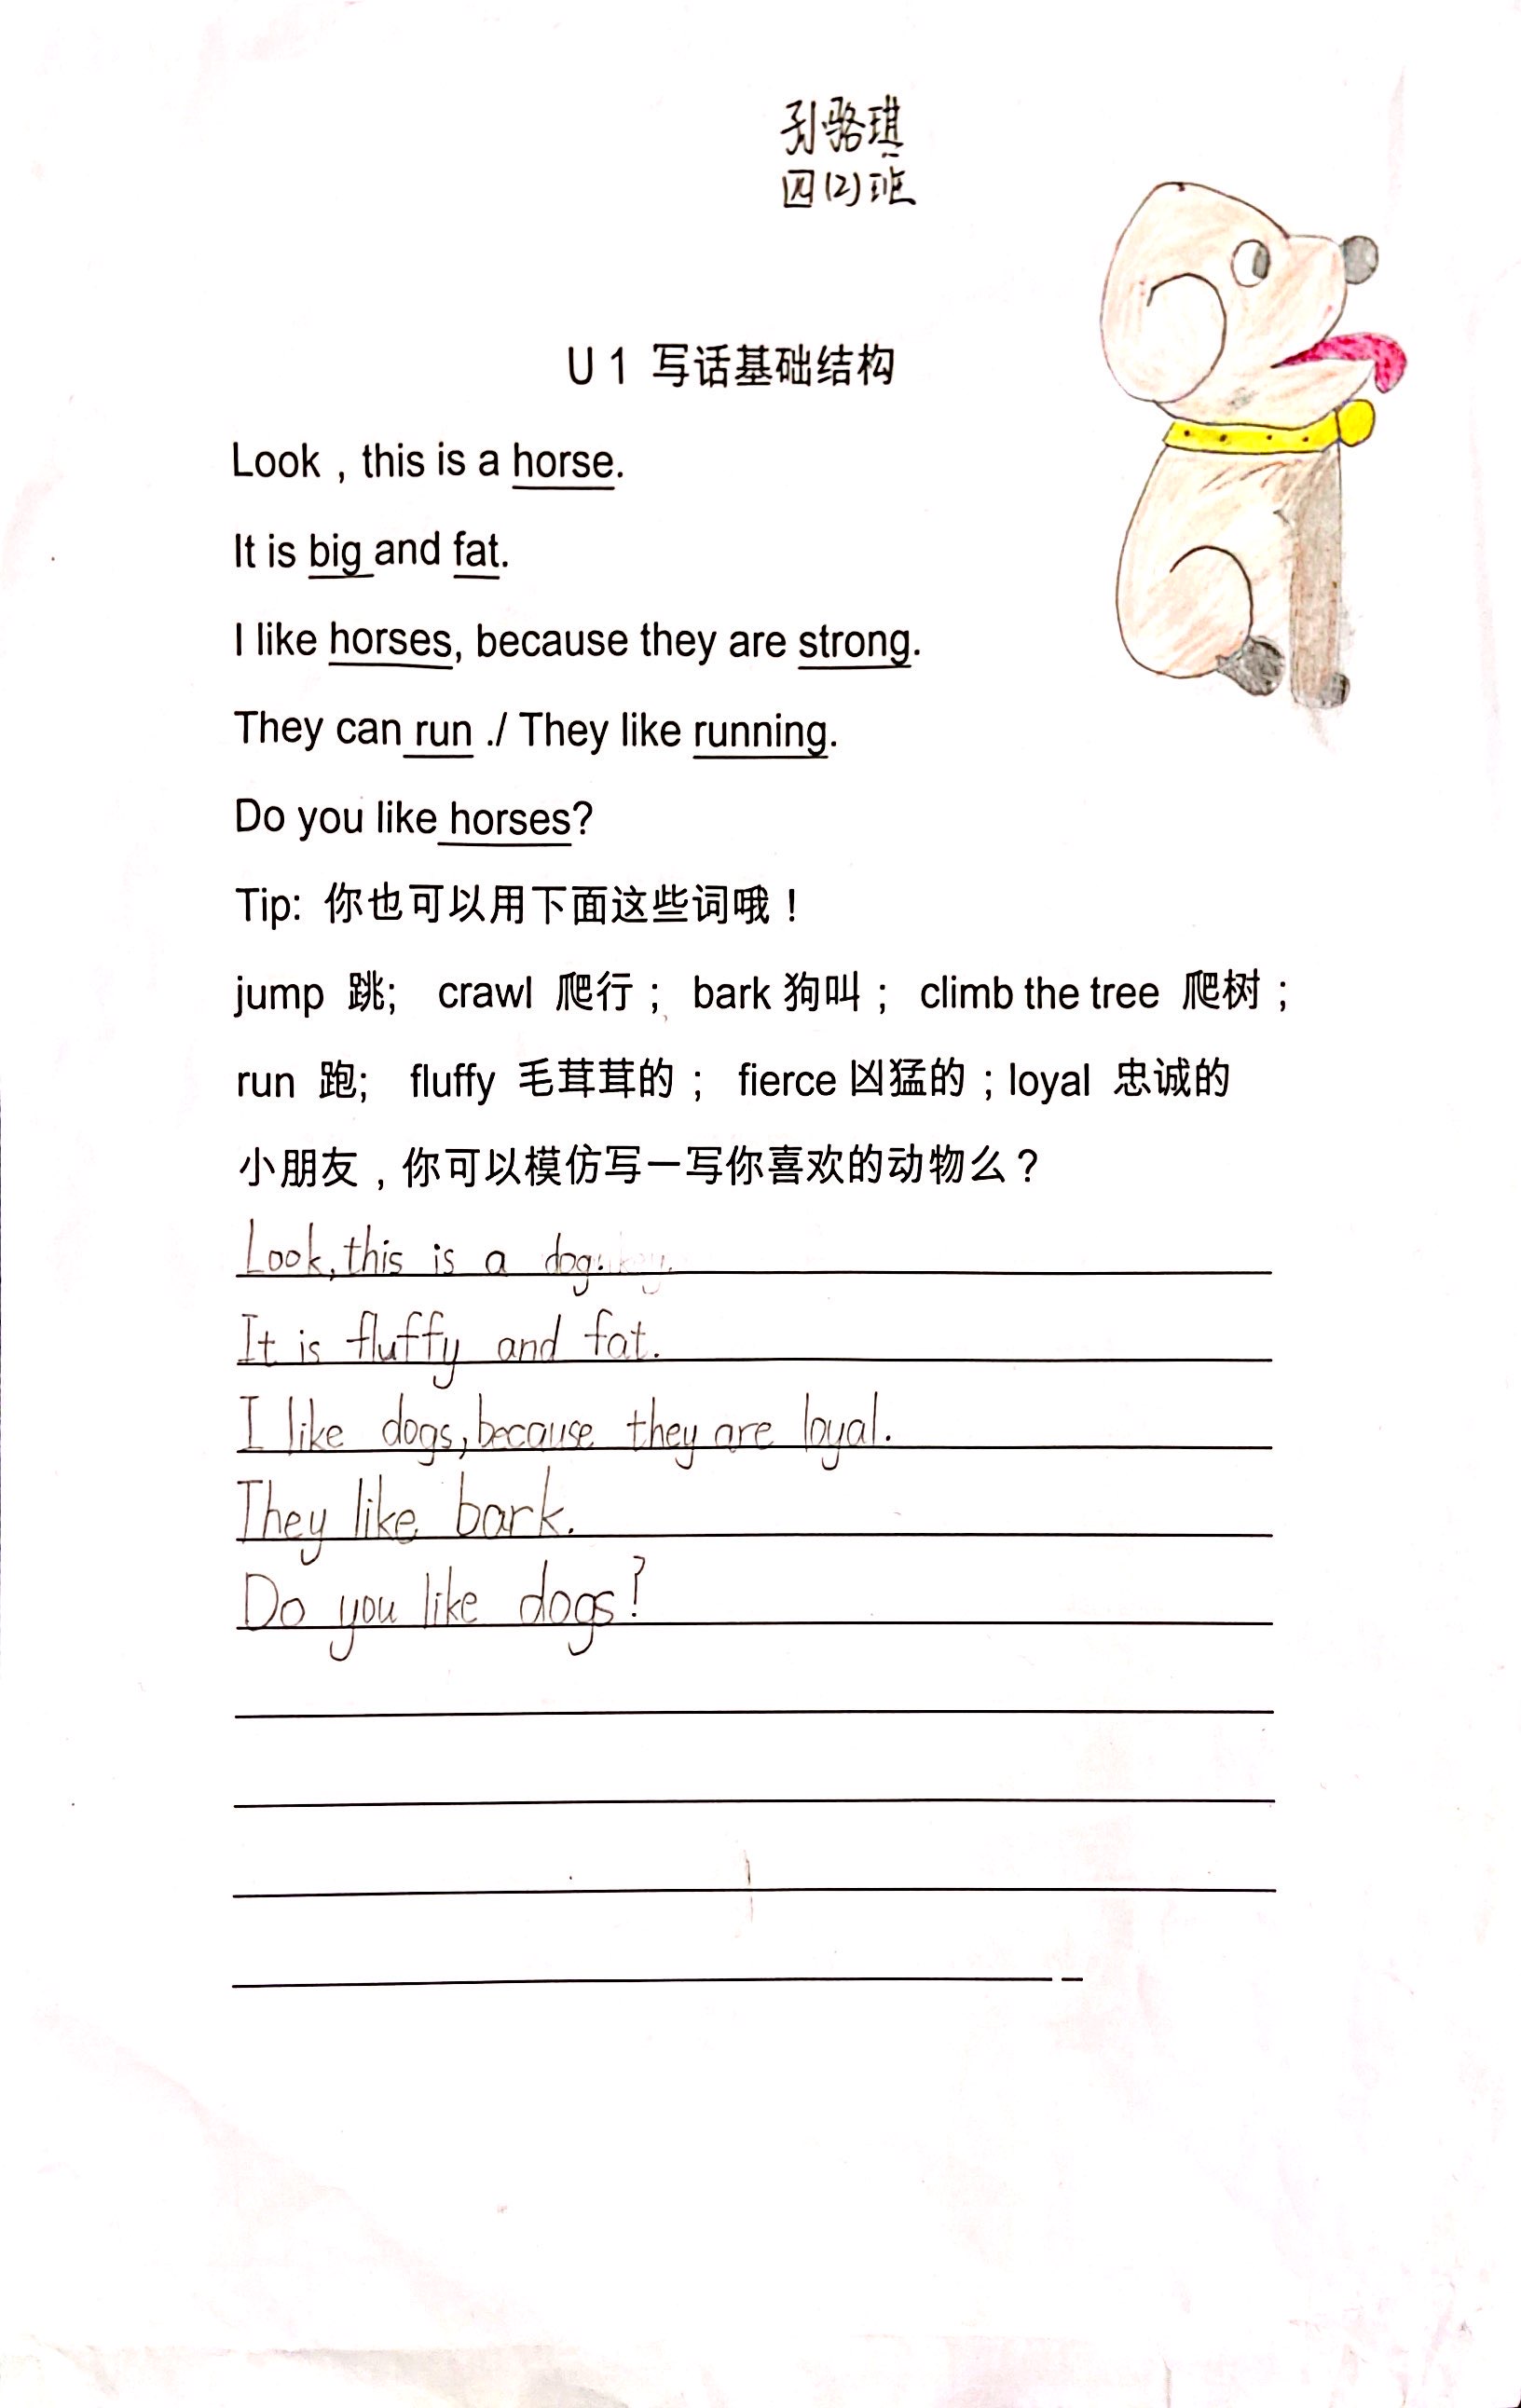 孙骆琪
四(2)班
U 1 写话基础结构
Look , this is a horse.
It is big and fat.
I like horses, because they are strong.
They can run ./ They like running.
Do you like horses?
Tip: 你也可以用下面这些词哦！
jump 跳; crawl 爬行； bark 狗叫； climb the tree 爬树；
run 跑; fluffy 毛茸茸的； fierce 凶猛的；loyal 忠诚的
小朋友，你可以模仿写一写你喜欢的动物么？
Look, this is a dog.
It is fluffy and fat.
I like dogs, because they are loyal.
They like bark.
Do you like dogs?